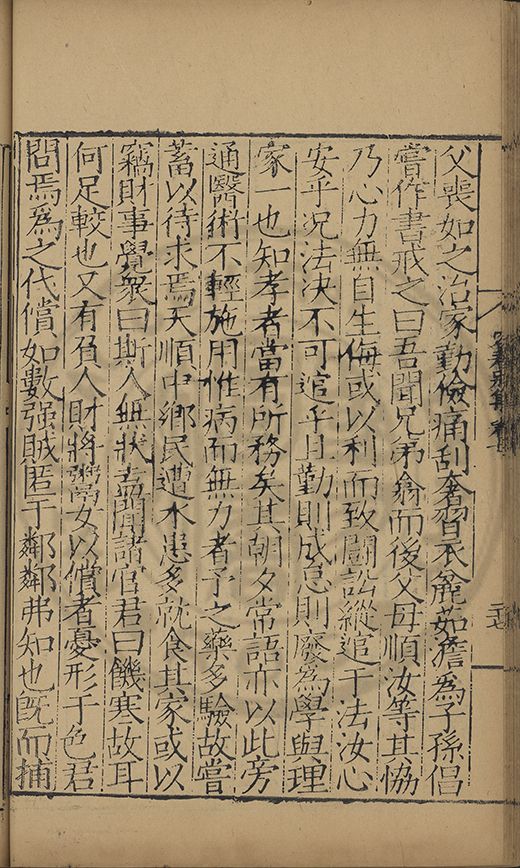 父喪如之治家勤儉痛刮奢習衣麄茹澹為子孫倡
嘗作書戒之曰吾聞兄弟翕而後父母順汝等其恊
乃心力無自生侮或以利而致鬬訟縱逭于法汝心
安乎况法決不可逭乎且勤則成怠則廢為學與理
家一也知孝者當有所務矣其朝夕常語亦以此旁
通醫術不輕施用惟病而無力者予之藥多驗故嘗
蓄以待求焉天順中鄉民遭水患多就食其家或以
竊財事覺衆曰斯人無狀盍聞諸官君曰饑寒故耳
何足較也又有負人財將鬻女以償者憂形于色君
問焉為之代償如數强賊匿于鄰鄰弗知也既而捕